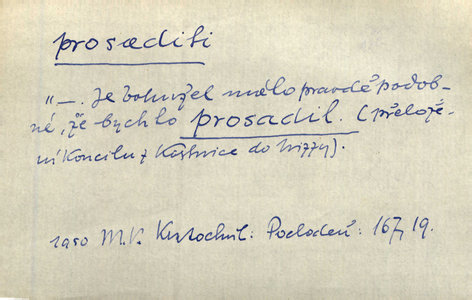 prosaditi
"—. Je bohužel málo pravděpodob-
né, že bych to prosadil. (přelože-
ní Koncilu z Kostnice do Nizzy).
1950 M.V. Kratochvíl: Pochodeň: 167, 19.